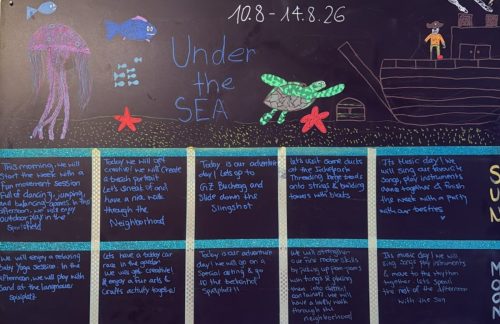 10.8 - 14.8.26
Under
the
SEA
This morning, we will
start the week with a
fun movement session
full of dancing, jumping,
and balancing games. In this
afternoon, we will enjoy
outdoor play in the
Today we will get
creative! We will create
a beach
Let's sneak out and
have a nice walk
through the
Neighborhood
Today is our adventure
day! Lets go to
GZ Bucheg and
Slide down the
Slingshot
Lets visit some ducks
at the
Threading large beads
onto strings & building
towers with blocks
Its Music day! We
will sing our favourite
Songs, play instruments
dance together & finish
the week with a party
with our besties
SUN
We will enjoy a relaxing
Baby Yoga Session. In the
afternoon, we will play with
Sand at the Langmauer
Spielplatz
Lets have a baby car
race in the garden
We will get creative!
& enjoy a fun arts &
Crafts activity together!
Today is our adventure
day! We will go on a
Special outing & go
to the
Spielplatz!!
We will strengthen
our fine motor skills
by picking up pom-poms
with tongs & placing
them into
containers. We will
have a lovely walk
through the
neighborhood
Its music day! We will
sing songs play instruments
& move to the rhythm
together. Lets spend
the rest of the afternoon
with the Sun
MOON